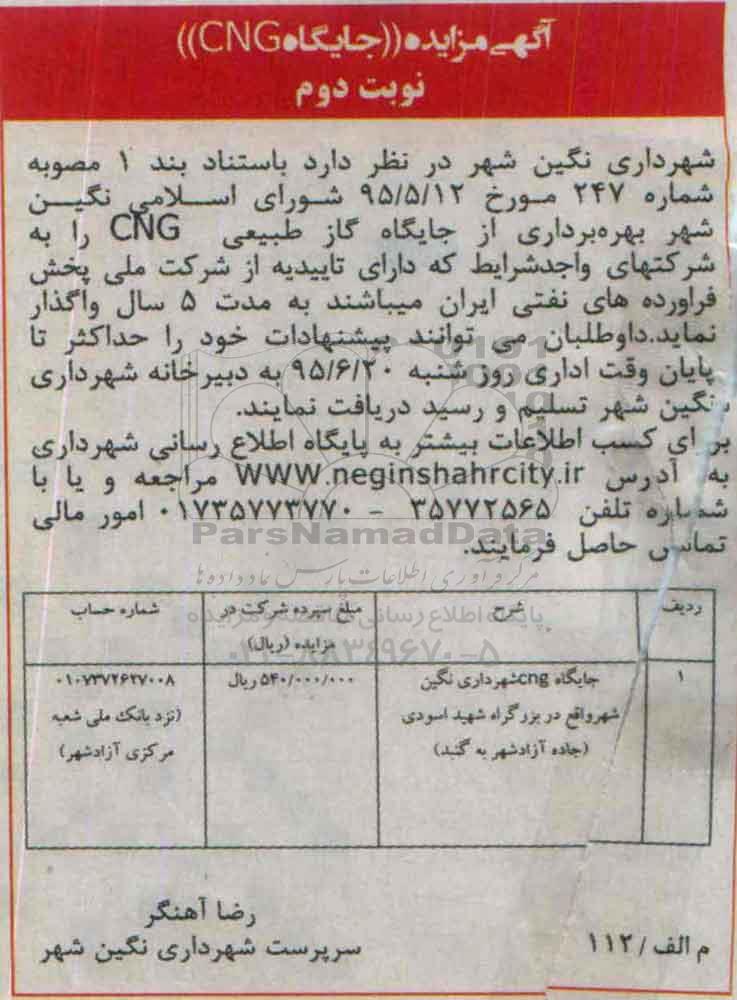 آگهی مزایده((جایگاه CNG))
نوبت دوم
شهرداری نگین شهر در نظر دارد باستناد بند ۱ مصوبه
شماره ۲۴۷ مورخ ۹۵/۵/۱۲ شورای اسلامی نگین
شهر بهره‌برداری از جایگاه گاز طبیعی CNG را به
شرکتهای واجدشرایط که دارای تاییدیه از شرکت ملی پخش
فراورده های نفتی ایران میباشند به مدت ۵ سال واگذار
نماید.داوطلبان می توانند پیشنهادات خود را حداکثر تا
پایان وقت اداری روز شنبه ۹۵/۶/۲۰ به دبیرخانه شهرداری
نگین شهر تسلیم و رسید دریافت نمایند.
برای کسب اطلاعات بیشتر به پایگاه اطلاع رسانی شهرداری
به آدرس WWW.neginshahrcity.ir مراجعه و یا با
شماره تلفن ۳۵۷۷۲۵۶۵ - ۰۱۷۳۵۷۷۳۷۷۰ امور مالی
تماس حاصل فرمایند.
ParsNamadData
مرکز فرآوری اطلاعات پارس نماد داده ها
پایگاه اطلاع رسانی مناقصه و مزایده
۰۲۱-۸۸۳۴۹۶۷۰-۵
ردیف شرح مبلغ سپرده شرکت در شماره حساب
مزایده (ریال)
۱ جایگاه cngشهرداری نگین ۵۴۰/۰۰۰/۰۰۰ ریال ۰۱۰۷۳۷۲۶۲۷۰۰۸
شهرواقع در بزرگراه شهید اسودی (نزد بانک ملی شعبه
(جاده آزادشهر به گنبد) مرکزی آزادشهر)
رضا آهنگر
سرپرست شهرداری نگین شهر
م الف / ۱۱۲